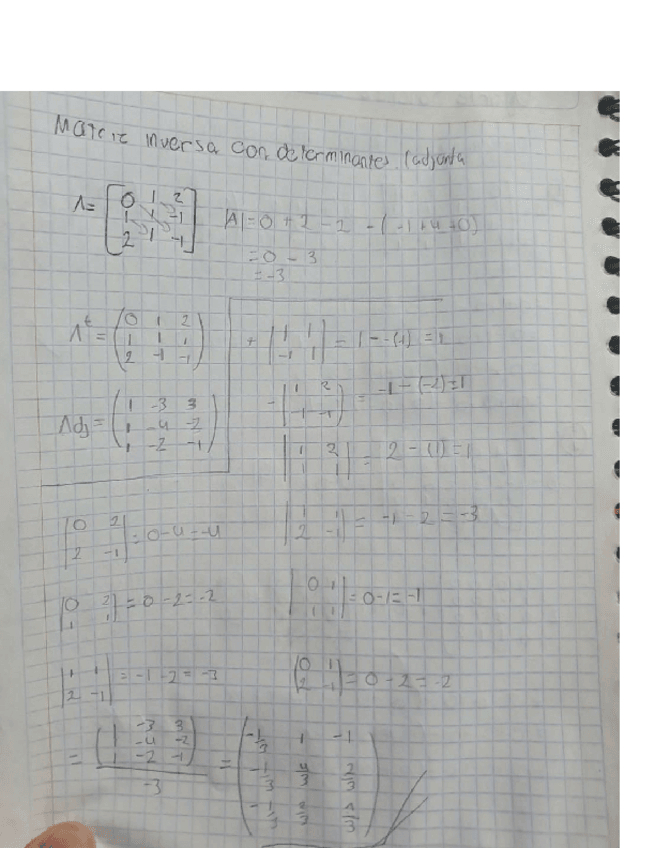 Matriz inversa con determinantes (adjunta
A= [0 1 2; 1 1 -1; 2 1 -1] |A|=0+2-2-(-1+4+0)
=0-3
=-3
A^t = (0 1 2; 1 1 1; 2 -1 -1) + |1 1; -1 1| = 1--(-1)=1
-|1 2; -1 -1| = -1-(-2)=1
Adj = (1 -3 3; 1 -4 -2; 1 -2 -1) |1 2; 1 1| = 2-(1)=1
|0 2; 2 -1| = 0-4=-4 |1 1; 2 -1| = -1-2=-3
|0 2; 1 1| = 0-2=-2 |0 1; 1 1| = 0-1=-1
|1 1; 2 -1| = -1-2=-3 |0 1; 2 -1| = 0-2=-2
= (1 -3 3; 1 -4 -2; 1 -2 -1) / -3 = (-1/3 1 -1; -1/3 4/3 2/3; -1/3 2/3 1/3)